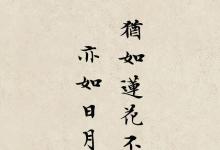 猶如蓮花不
亦如日月